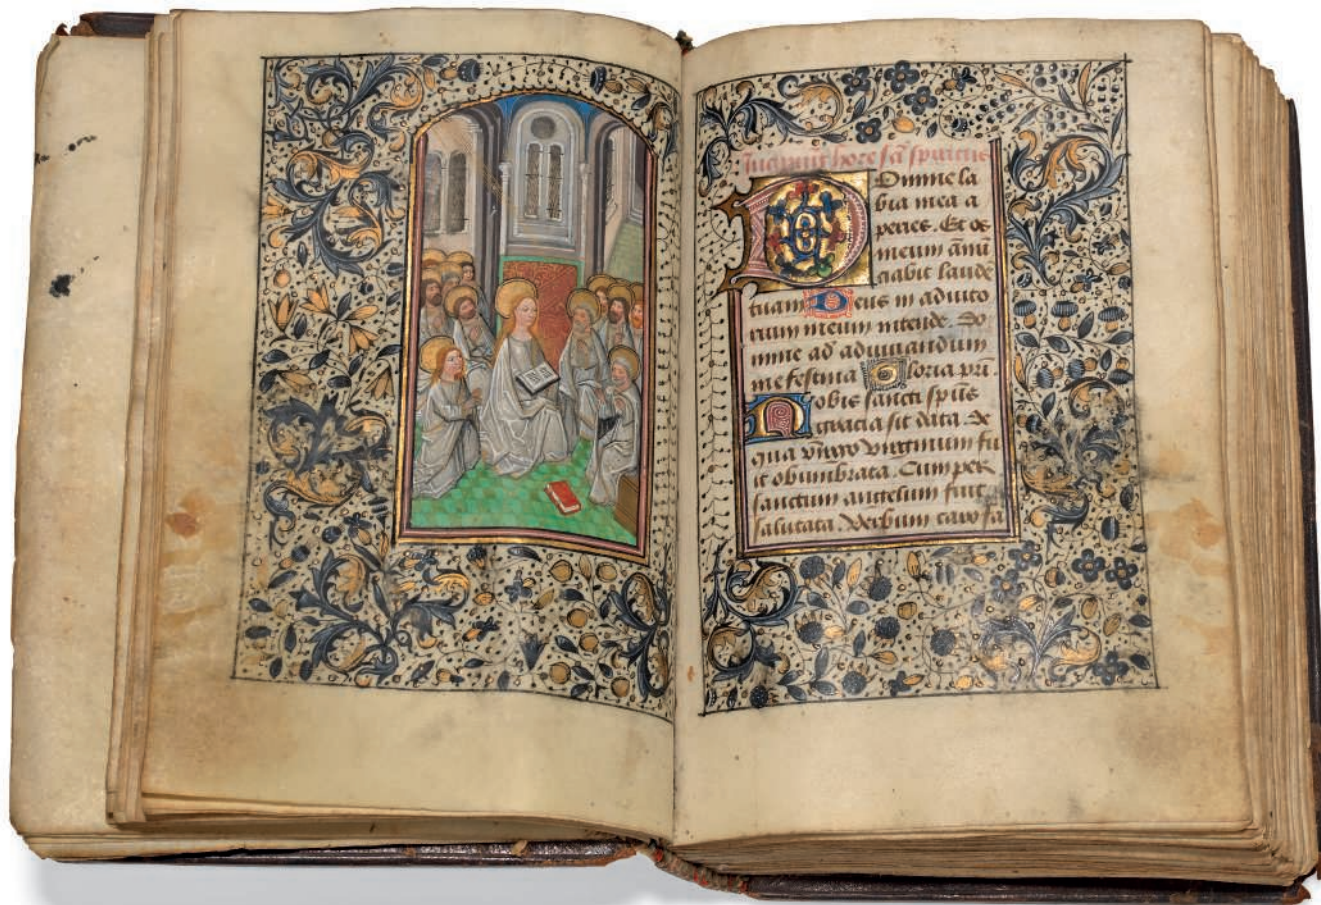 Incipiunt hore sci spiritus
Domine la
bia mea a
peries. Et os
meum ānū
ciabit laudē
tuam Deus in adiuto
rium meum intende. Do
mine ad adiuuandum
me festina Gloria pri
Nobis sancti spūs
gracia sit data De
qua virgo virginum fu
it obumbrata. Cum per
sanctum angelum fuit
salutata. Verbum caro fa